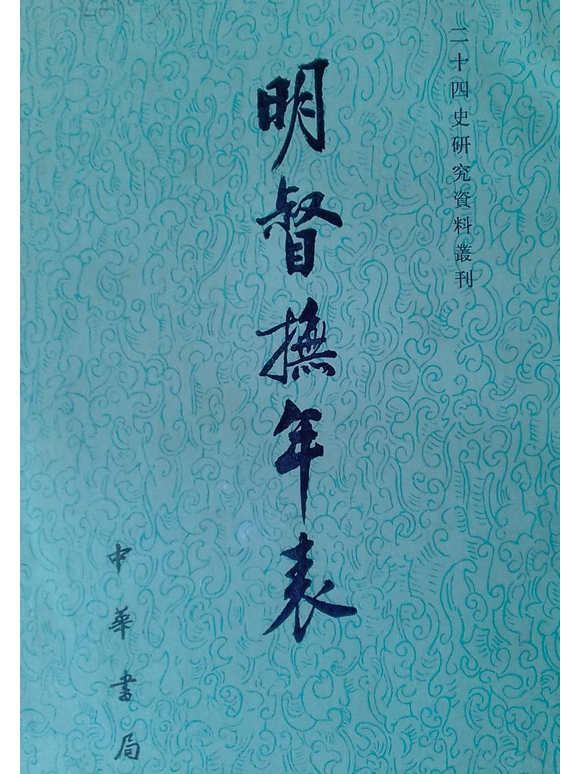 二十四史研究資料叢刊
明督撫年表
中華書局